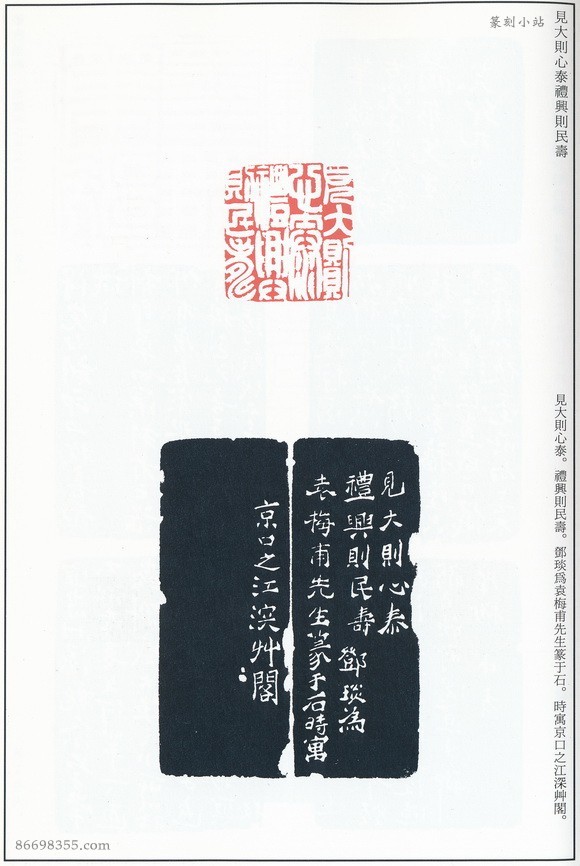 見大則心泰禮興則民壽
見大則心泰。禮興則民壽。鄧琰爲袁梅甫先生篆于石。時寓京口之江深艸閣。
篆刻小站
見大則
心泰
禮興
則民壽
見大則心泰
禮興則民壽 鄧琰為
袁梅甫先生篆于石時寓
京口之江深艸閣
86698355.com